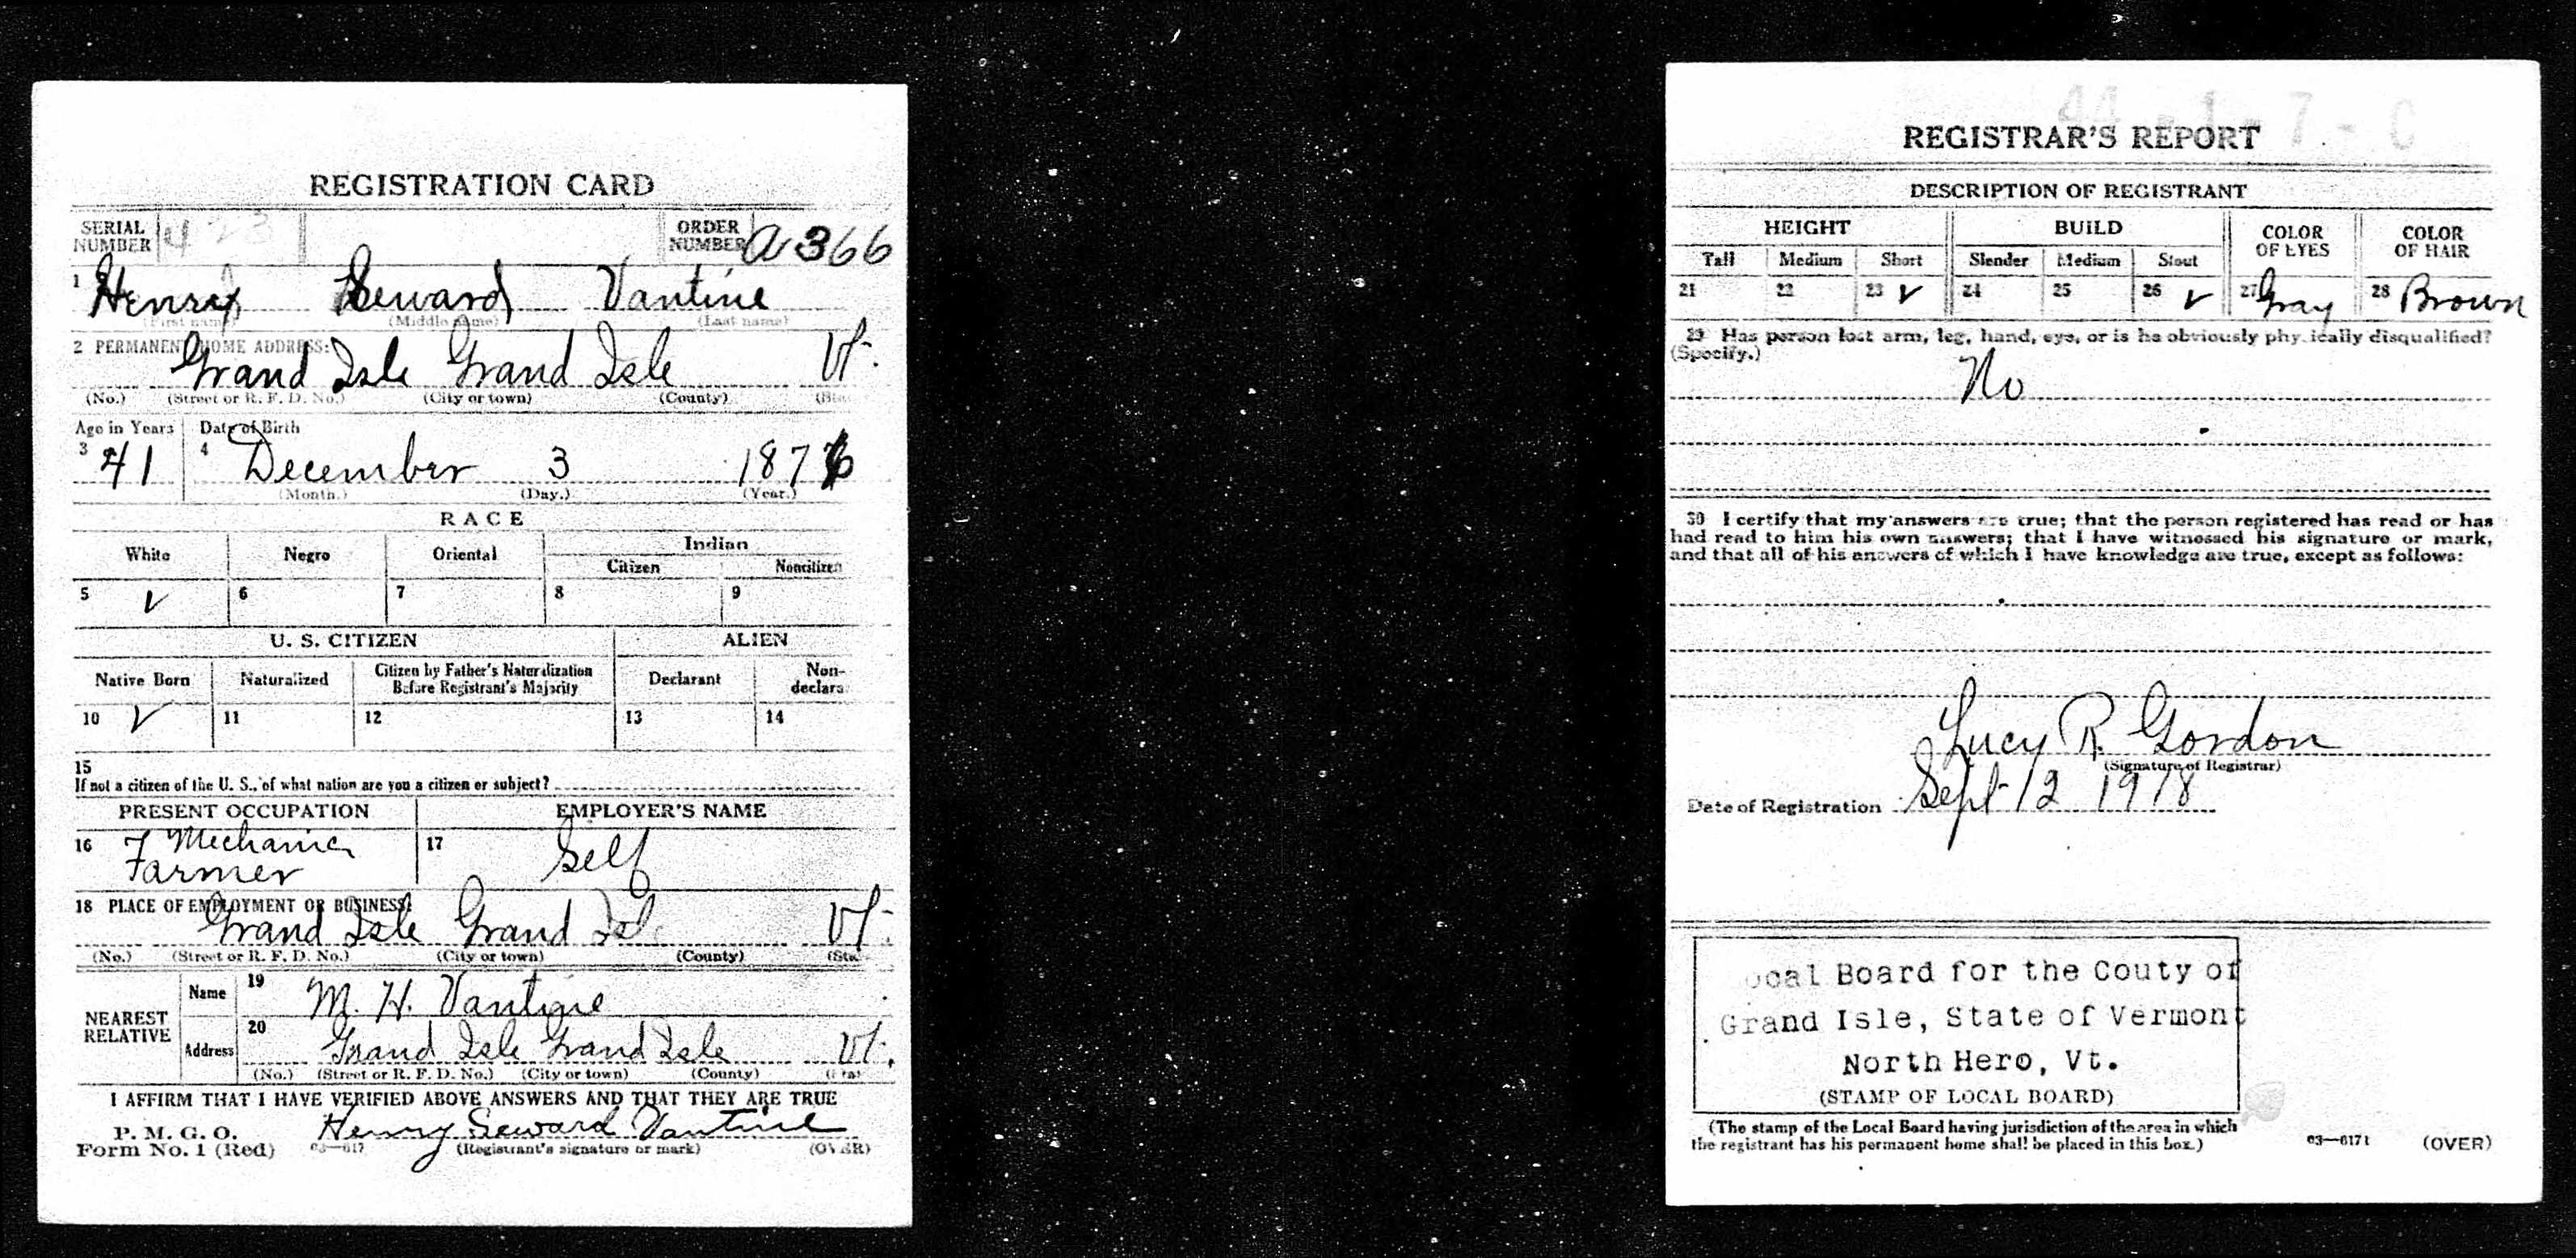 REGISTRATION CARD
SERIAL NUMBER 423 ORDER NUMBER A366
1 Henry Seward Vantine
(First name) (Middle name) (Last name)
2 PERMANENT HOME ADDRESS:
Grand Isle Grand Isle Vt.
(No.) (Street or R. F. D. No.) (City or town) (County) (State)
Age in Years Date of Birth
3 41 4 December 3 1876
(Month.) (Day.) (Year.)
RACE
White Negro Oriental Indian
Citizen Noncitizen
5 ✓ 6 7 8 9
U. S. CITIZEN ALIEN
Native Born Naturalized Citizen by Father's Naturalization Before Registrant's Majority Declarant Non-declara
10 ✓ 11 12 13 14
15
If not a citizen of the U. S., of what nation are you a citizen or subject?
PRESENT OCCUPATION EMPLOYER'S NAME
16 Mechanic 17 Self
Farmer
18 PLACE OF EMPLOYMENT OR BUSINESS:
Grand Isle Grand Isl Vt.
(No.) (Street or R. F. D. No.) (City or town) (County) (Sta
NEAREST RELATIVE
Name 19 M. H. Vantine
Address 20 Grand Isle Grand Isle Vt.
(No.) (Street or R. F. D. No.) (City or town) (County)
I AFFIRM THAT I HAVE VERIFIED ABOVE ANSWERS AND THAT THEY ARE TRUE
P. M. G. O.
Form No. 1 (Red) 03—617 Henry Seward Vantine
(Registrant's signature or mark) (OVER)
44-1-7-C
REGISTRAR'S REPORT
DESCRIPTION OF REGISTRANT
HEIGHT BUILD COLOR OF EYES COLOR OF HAIR
Tall Medium Short Slender Medium Stout
21 22 23 ✓ 24 25 26 ✓ 27 Gray 28 Brown
29 Has person lost arm, leg, hand, eye, or is he obviously physically disqualified?
(Specify.)
No
30 I certify that my answers are true; that the person registered has read or has
had read to him his own answers; that I have witnessed his signature or mark,
and that all of his answers of which I have knowledge are true, except as follows:
Lucy R. Gordon
(Signature of Registrar)
Date of Registration Sept 12 1918
ocal Board for the Couty of
Grand Isle, State of Vermont
North Hero, Vt.
(STAMP OF LOCAL BOARD)
(The stamp of the Local Board having jurisdiction of the area in which
the registrant has his permanent home shall be placed in this box.)
03—6171 (OVER)